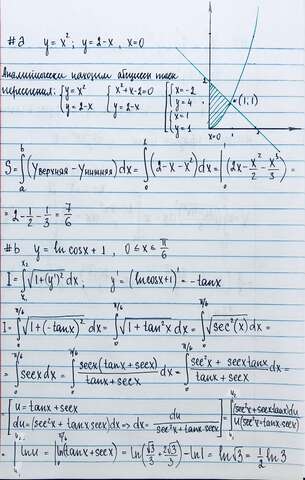 #a y = x²; y = 2-x, x=0
Аналитически находим абсциссы точек
пересечения: { y = x² { x²+x-2=0 [ { x=-2
{ y=2-x { y=2-x { y=4
{ x=1
{ y=1
2
(1,1)
0
x=0
S = ∫ₐᵇ (Yверхняя - Yнижняя) dx = ∫₀¹ (2-x-x²) dx = |₀¹ (2x - x²/2 - x³/3) =
= 2 - 1/2 - 1/3 = 7/6
#b y = ln cosx + 1, 0 ≤ x ≤ π/6
I = ∫ₓ₁ˣ² √(1+(y')²) dx, y' = (ln cosx+1)' = -tanx
I = ∫₀^(π/6) √(1+(-tanx)²) dx = ∫₀^(π/6) √(1+tan²x) dx = ∫₀^(π/6) √(sec²(x)) dx =
= ∫₀^(π/6) secx dx = ∫₀^(π/6) secx(tanx+secx)/(tanx+secx) dx = ∫₀^(π/6) (sec²x + secx tanx)/(tanx+secx) dx =
= [ u = tanx + secx
du = (sec²x + tanx secx) dx => dx = du/(sec²x+tanx secx) ] = ∫ᵤ₁ᵘ² (sec²x+secx tanx) du/(u(sec²x+tanx secx)) =
= |ᵤ₁ᵘ² ln u = |₀^(π/6) ln(tanx+secx) = ln(√3/3 + 2√3/3) - ln1 = ln√3 = 1/2 ln3